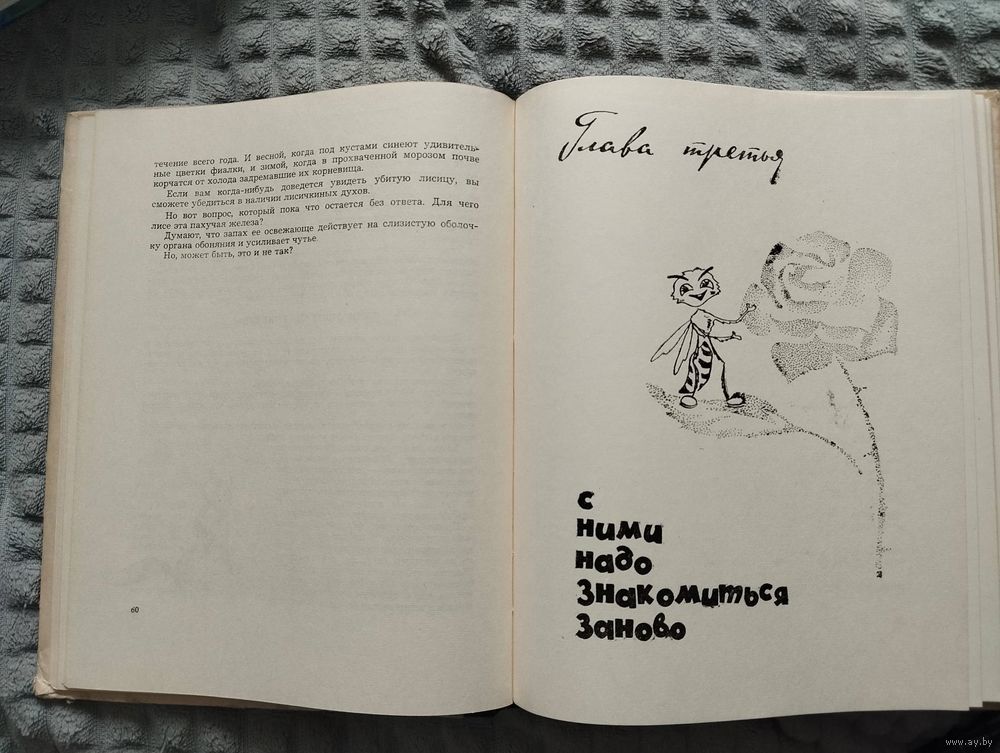 течение всего года. И весной, когда под кустами синеют удивитель-
ные цветки фиалки, и зимой, когда в прохваченной морозом почве
корчатся от холода задремавшие их корневища.
Если вам когда-нибудь доведется увидеть убитую лисицу, вы
сможете убедиться в наличии лисичкиных духов.
Но вот вопрос, который пока что остается без ответа. Для чего
лисе эта пахучая железа?
Думают, что запах ее освежающе действует на слизистую оболоч-
ку органа обоняния и усиливает чутье.
Но, может быть, это и не так?
60
Глава третья
с
ними
надо
знакомиться
заново
www.ay.by